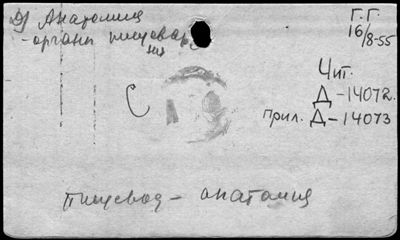 Д) Анатомия
- органы пищеваре
ния
Г.Г.
16/8-55
Чит.
Д-14072.
прил. Д-14073
С
Пищевод - анатомия